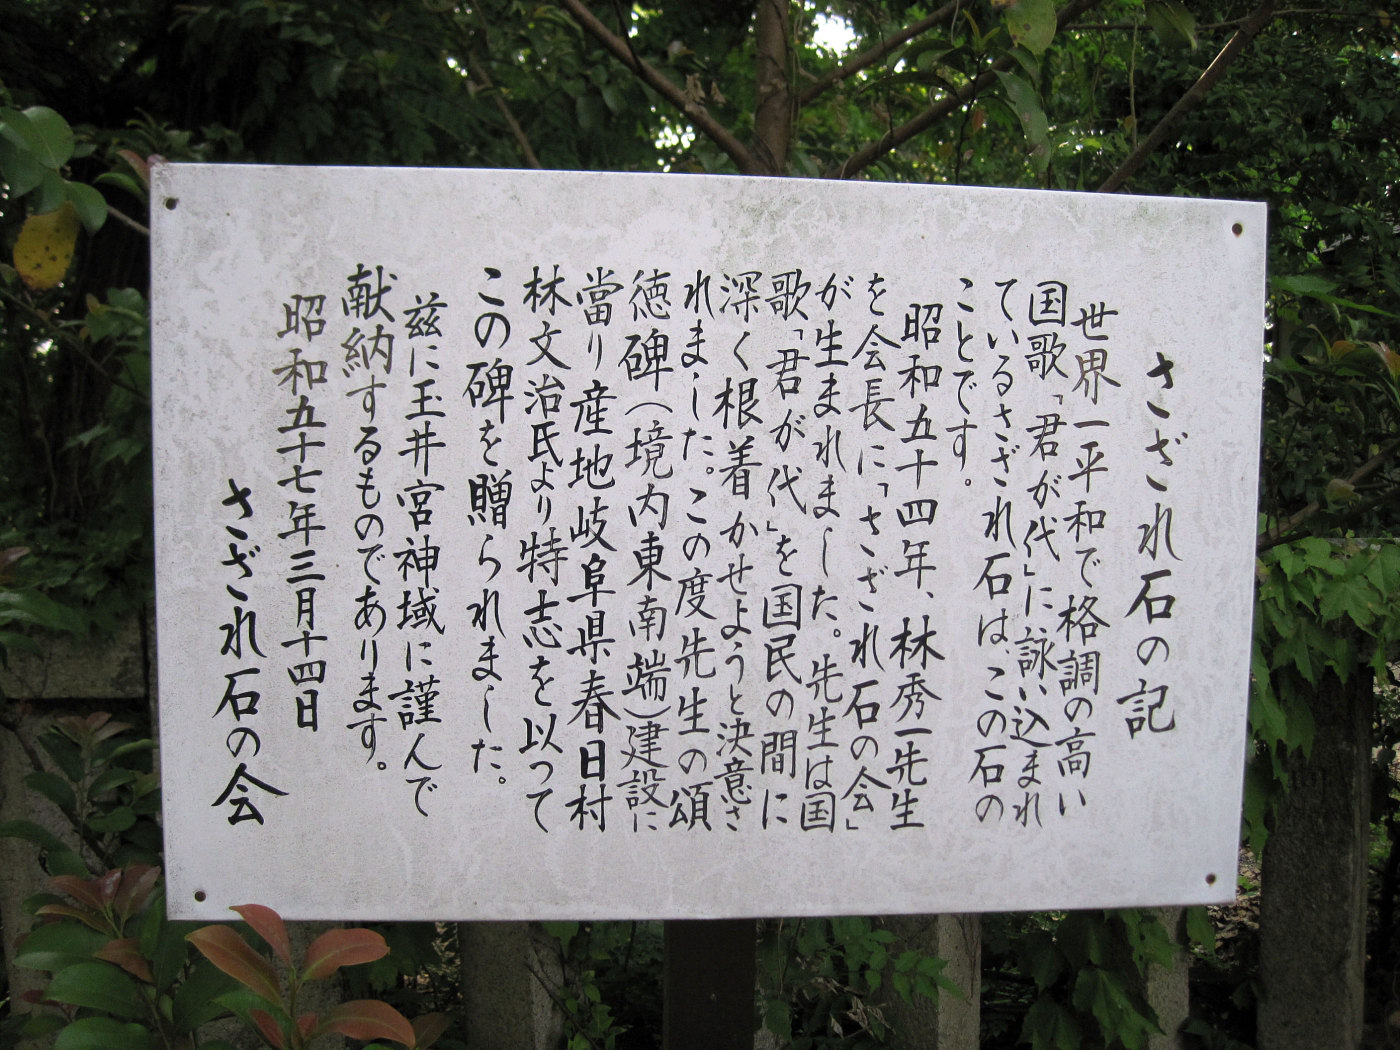 さざれ石の記
世界一平和で格調の高い
国歌「君が代」に詠い込まれ
ているさざれ石は、この石の
ことです。
昭和五十四年、林秀一先生
を会長に「さざれ石の会」
が生まれました。先生は国
歌「君が代」を国民の間に
深く根着かせようと決意さ
れました。この度先生の頌
徳碑（境内東南端）建設に
當り産地岐阜県春日村
林文治氏より特志を以って
この碑を贈られました。
茲に玉井宮神域に謹んで
献納するものであります。
昭和五十七年三月十四日
さざれ石の会